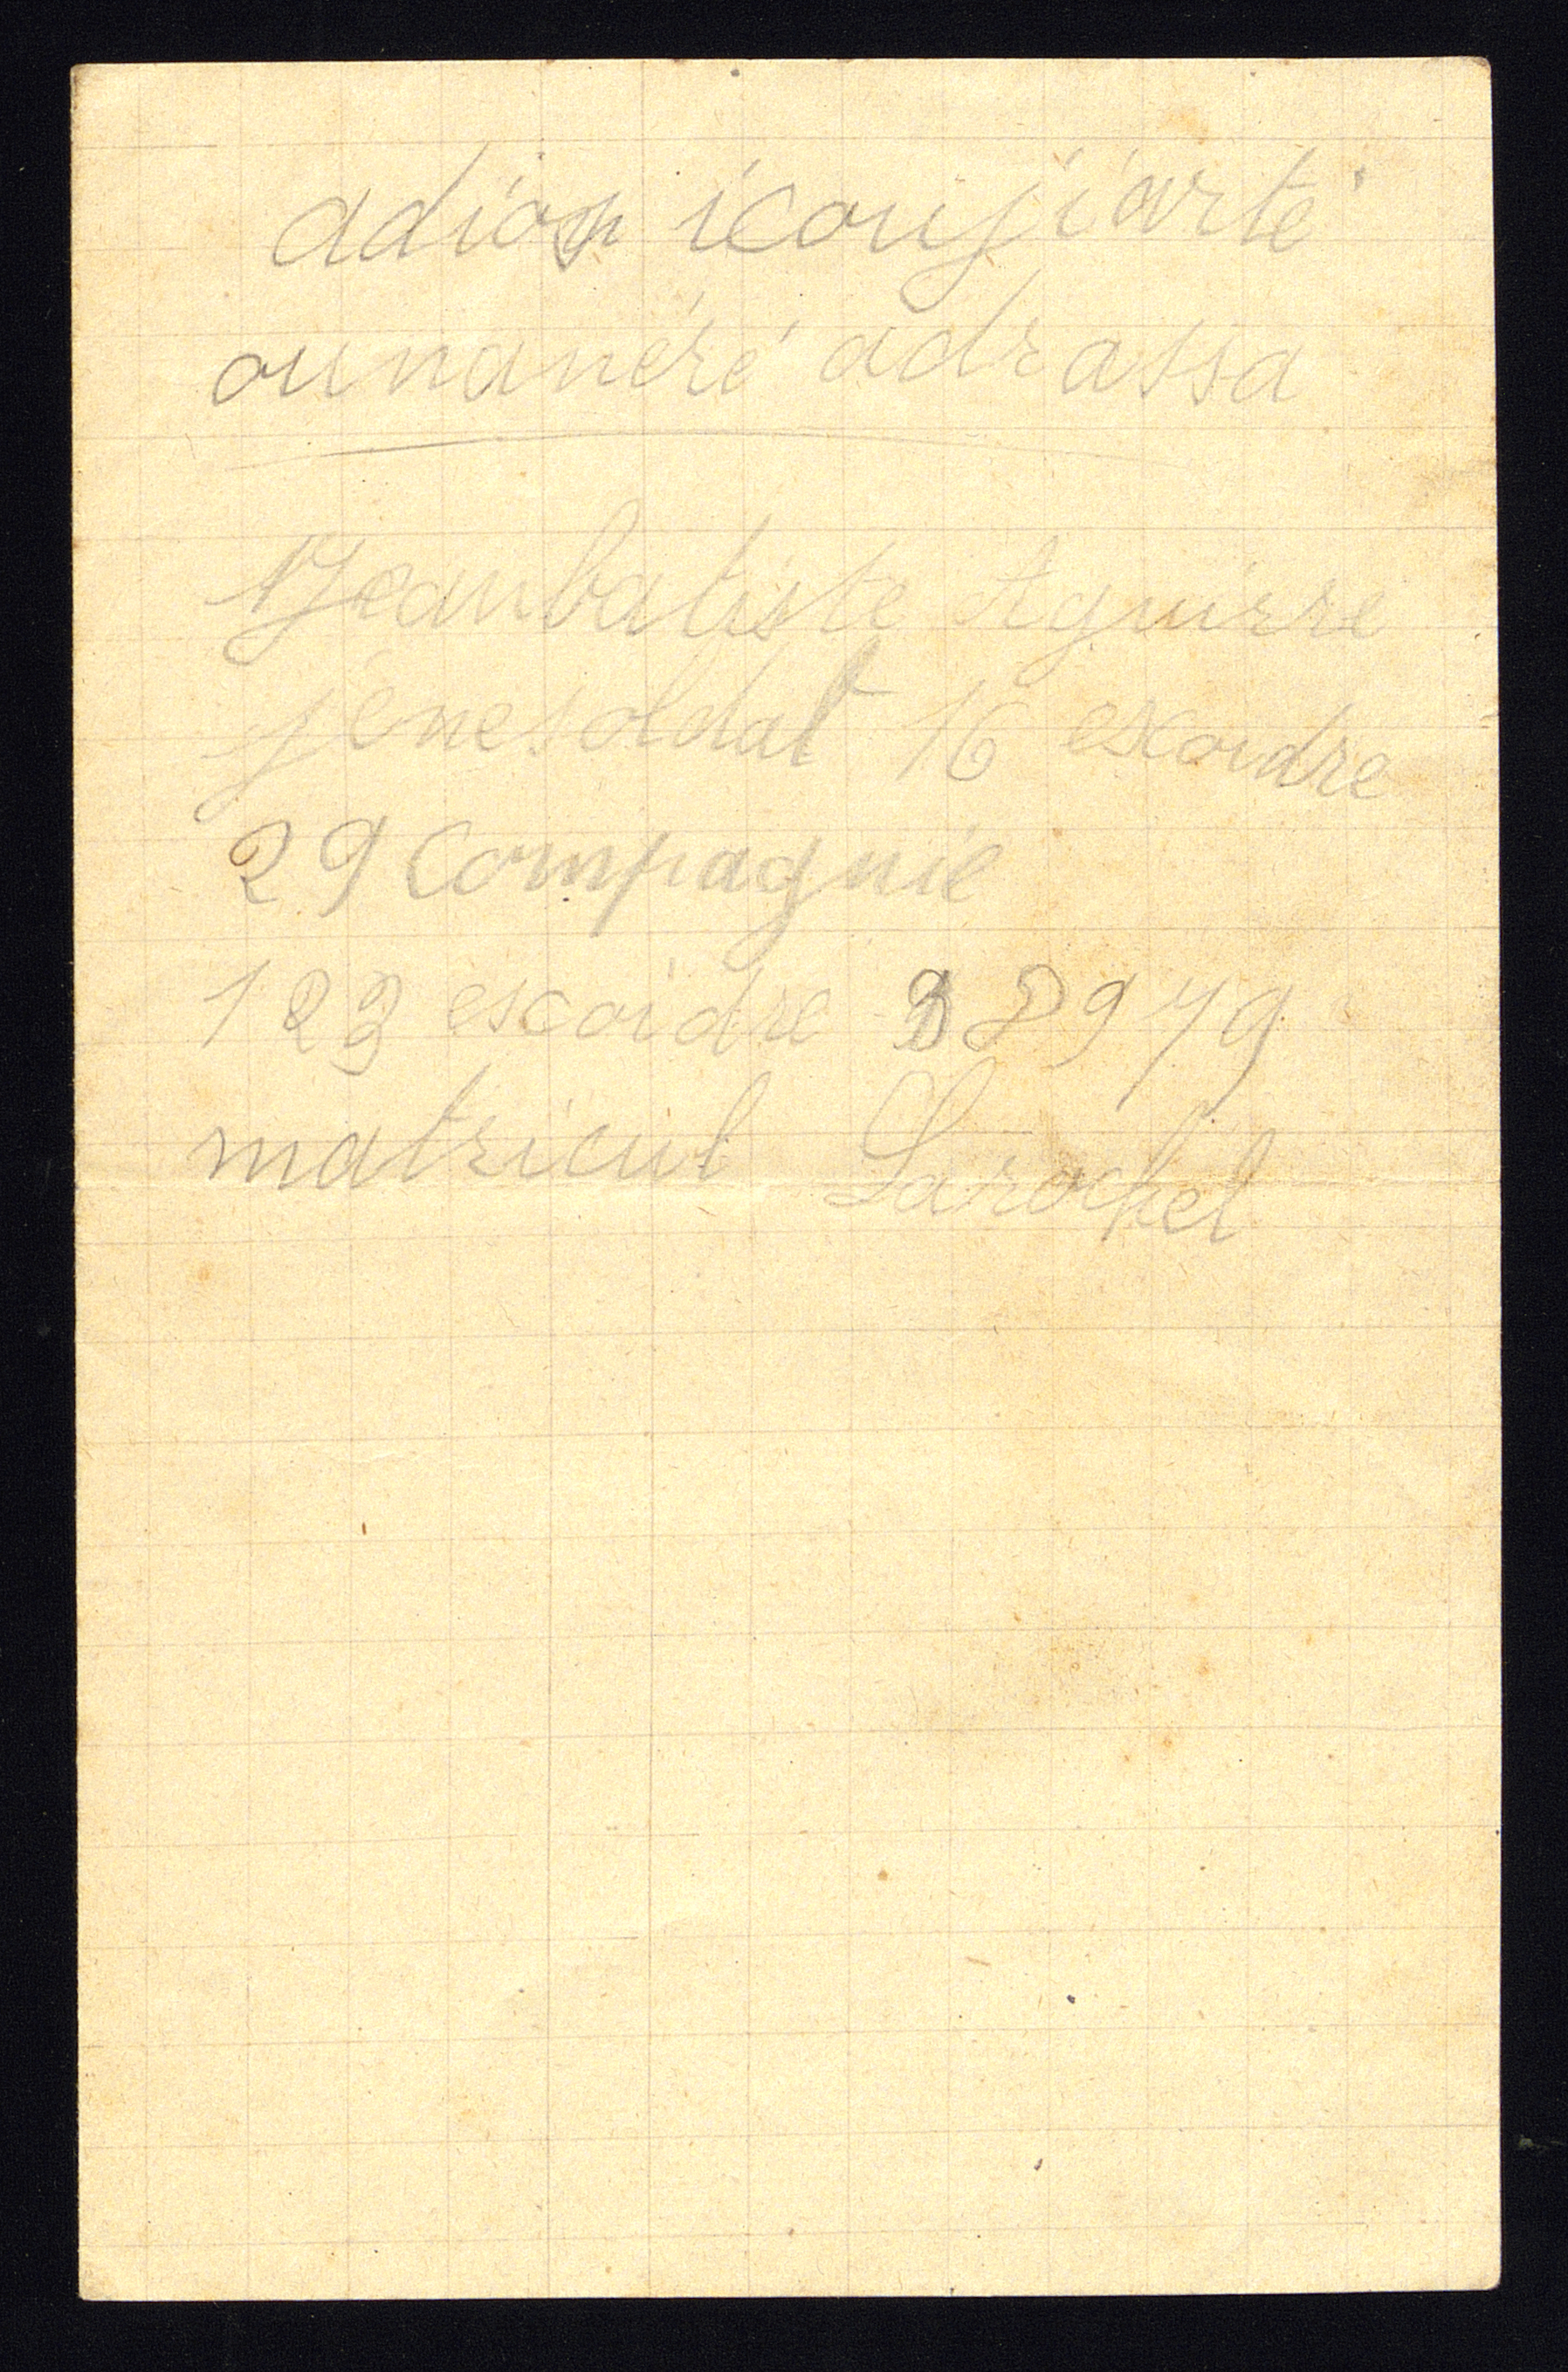 adios icousiarté
ounanéré adrassa
Jeanbatiste Aguirre
jénesoldat 16 escoidre
29 Compagnie
123 escoidre 38979
matricul Larochel